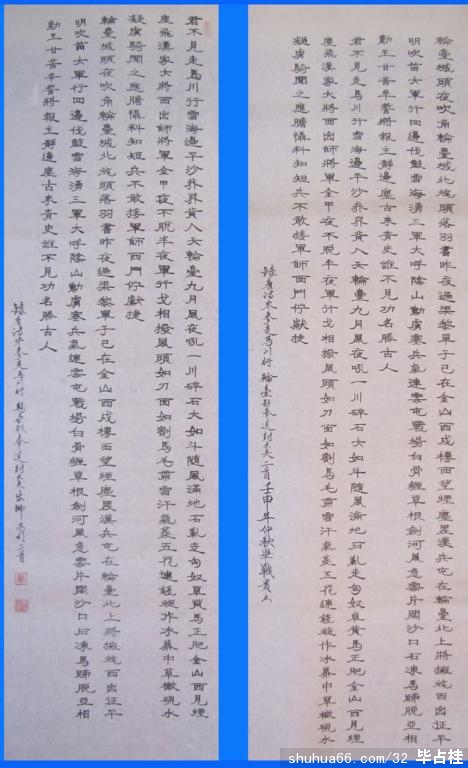 君不見走馬川行雪海邊平沙莽莽黃入天輪臺九月風夜吼一川碎石大如斗隨風滿地石亂走匈奴草黃馬正肥金山西見煙
塵飛漢家大將西出師將軍金甲夜不脫半夜軍行戈相撥風頭如刀面如割馬毛帶雪汗氣蒸五花連錢旋作冰幕中草檄硯水
凝虜騎聞之應膽懾料知短兵不敢接軍師西門佇獻捷
輪臺城頭夜吹角輪臺城北旄頭落羽書昨夜過渠黎單于已在金山西戍樓西望煙塵黑漢兵屯在輪臺北上將擁旄西出征平
明吹笛大軍行四邊伐鼓雪海湧三軍大呼陰山動虜塞兵氣連雲屯戰場白骨纏草根劍河風急雲片闊沙口石凍馬蹄脫亞相
勤王甘苦辛誓將報主靜邊塵古來青史誰不見功名勝古人
錄唐詩岑參走馬川行輪臺歌奉送封大夫出師西征二首
輪臺城頭夜吹角輪臺城北旄頭落羽書昨夜過渠黎單于已在金山西戍樓西望煙塵黑漢兵屯在輪臺北上將擁旄西出征平
明吹笛大軍行四邊伐鼓雪海湧三軍大呼陰山動虜塞兵氣連雲屯戰場白骨纏草根劍河風急雲片闊沙口石凍馬蹄脫亞相
勤王甘苦辛誓將報主靜邊塵古來青史誰不見功名勝古人
君不見走馬川行雪海邊平沙莽莽黃入天輪臺九月風夜吼一川碎石大如斗隨風滿地石亂走匈奴草黃馬正肥金山西見煙
塵飛漢家大將西出師將軍金甲夜不脫半夜軍行戈相撥風頭如刀面如割馬毛帶雪汗氣蒸五花連錢旋作冰幕中草檄硯水
凝虜騎聞之應膽懾料知短兵不敢接軍師西門佇獻捷
錄唐詩岑參走馬川行輪臺歌奉送封大夫二首壬申年仲秋畢
shuhua66.com/32 毕占桂